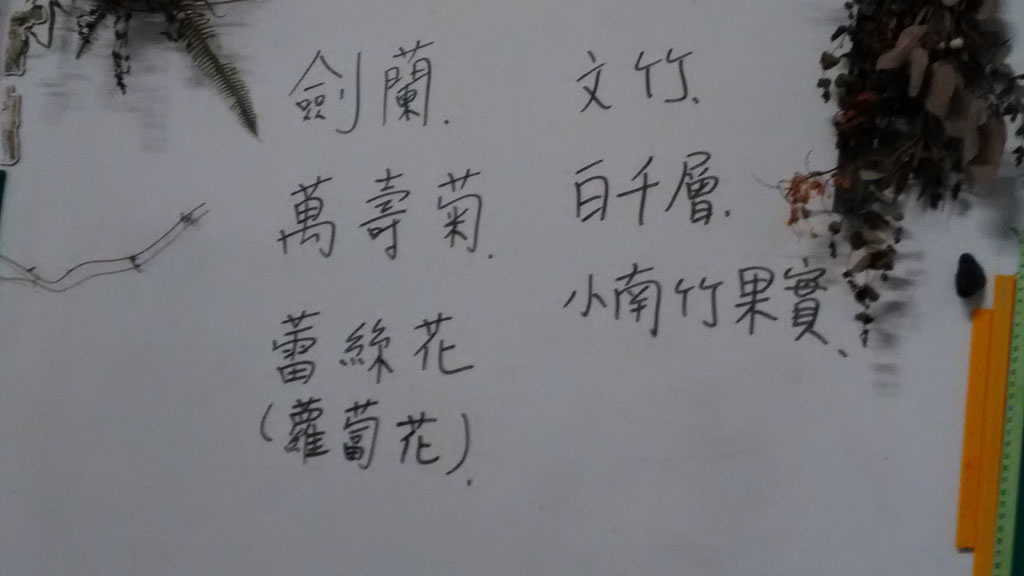 劍蘭.
萬壽菊.
蕾絲花
(蘿蔔花).
文竹、
白千層.
小南竹果實、